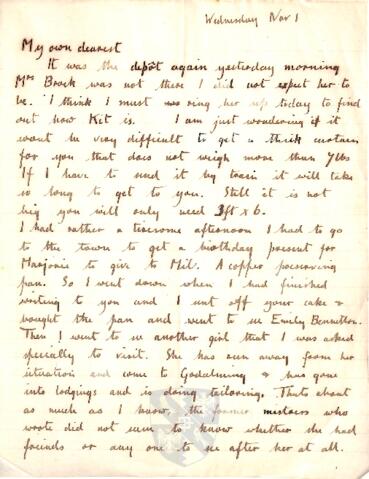 Wednesday Nov 1
My own dearest
It was the depôt again yesterday morning
Mrs Brock was not there I did not expect her to
be. I think I must ring her up today to find
out how Kit is. I am just wondering if it
wont be very difficult to get a thick curtain
for you that does not weigh more than 7lbs
If I have to send it by train it will take
so long to get to you. Still it is not
big you will only need 3ft x 6.
I had rather a tiresome afternoon I had to go
to the town to get a birthday present for
Marjorie to give to Mil. A copper preserving
pan. So I went down when I had finished
writing to you and I sent off your cake &
bought the pan and went to see Emily Bennetton.
Then I went to see another girl that I was asked
specially to visit. She has run away from her
situation and come to Godalming & has gone
into lodgings and is doing tailoring. Thats about
as much as I know, the former mistress who
wrote did not seem to know whether she had
friends or any one to see after her at all.